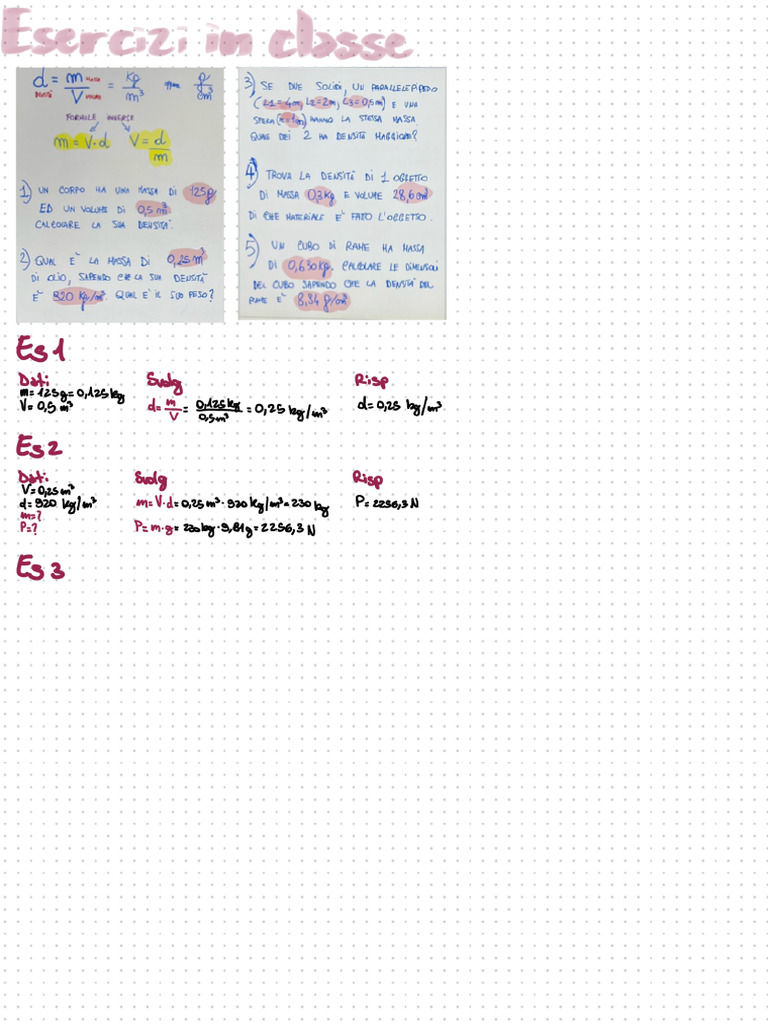 Esercizi in classe
d = m MASSA = kg oppure g
DENSITÀ V VOLUME m³ cm³
FORMULE INVERSE
m = V·d V = d
m
1) UN CORPO HA UNA MASSA DI 125g
ED UN VOLUME DI 0,5 m³
CALCOLARE LA SUA DENSITÀ.
2) QUAL È LA MASSA DI 0,25 m³
DI OLIO, SAPENDO CHE LA SUA DENSITÀ
È 920 kg/m³. QUAL È IL SUO PESO?
3) SE DUE SOLIDI, UN PARALLELEPIPEDO
(L1 = 4m, L2 = 2m, L3 = 0,5m) E UNA
SFERA (r = 1m) HANNO LA STESSA MASSA
QUALE DEI 2 HA DENSITÀ MAGGIORE?
4) TROVA LA DENSITÀ DI 1 OGGETTO
DI MASSA 0,3 kg E VOLUME 28,6 cm³
DI CHE MATERIALE È FATO L'OGGETTO.
5) UN CUBO DI RAME HA MASSA
DI 0,630 kg. CALCOLARE LE DIMENSIONI
DEL CUBO SAPENDO CHE LA DENSITÀ DEL
RAME È 8,94 g/cm³
Es 1
Dati Svolg Risp
m= 125g = 0,125 kg
V= 0,5 m³
d= m/V = 0,125 kg / 0,5 m³ = 0,25 kg/m³
d= 0,25 kg/m³
Es 2
Dati Svolg Risp
V= 0,25 m³
d= 920 kg/m³
m=?
P=?
m= V·d = 0,25 m³ · 920 kg/m³ = 230 kg
P= m·g = 230kg · 9,81g = 2256,3 N
P= 2256,3 N
Es 3